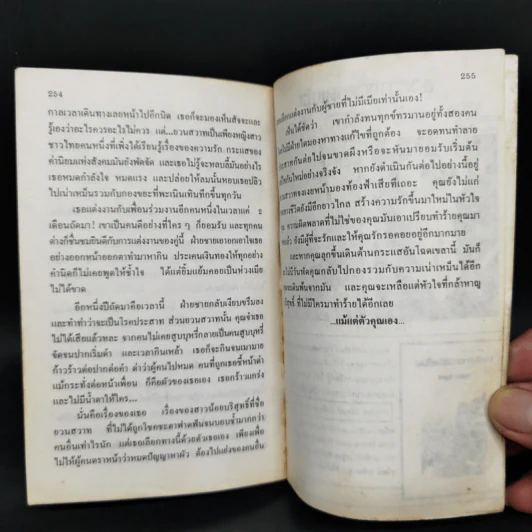 254
กาลเวลาเดินทางเลยหน้าไปอีกนิด เธอก็จะมองเห็นสัจจะและ
รู้เองว่าอะไรควรอะไรไม่ควร แต่...อวนสวาทเป็นเพียงหญิงสาว
ชาวไทยคนหนึ่งที่เพิ่งได้เรียนรู้เรื่องของความรัก กระแสของ
ค่านิยมแห่งสังคมมันยังพัดจัด และเธอไม่รู้จะหลบลี้มันอย่างไร
เธอหมดกำลังใจ หมดแรง และปล่อยให้ลมนั้นหอบเธอปลิว
ไปเน่าเหม็นรวมกับกองขยะที่พะเนินเทินทึกขึ้นทุกวัน
เธอแต่งงานกับเพื่อนร่วมงานอีกคนหนึ่งในเวลาแค่ ๒
เดือนถัดมา! เขาเป็นคนดีอย่างที่ใคร ๆ ก็ยอมรับ และทุกคน
ต่างก็ชื่นชมยินดีกับการแต่งงานของคู่นี้ ฝ่ายชายเอาอกเอาใจเธอ
อย่างออกหน้าออกตาทำมาหากิน ประเคนเงินทองให้ทุกอย่าง
คำนิดก็ไม่เคยพูดให้ช้ำใจ ได้แต่ยิ้มแย้มคอยเป็นห่วงเมีย
ไม่ได้ขาด
อีกหนึ่งปีถัดมาคือเวลานี้ ฝ่ายชายกลับเงียบขรึมลง
และทำท่าว่าจะเป็นโรคประสาท ส่วนอวนสวาทนั้น คุณจำเธอ
ไม่ได้เสียแล้วหละ จากคนไม่เคยสูบบุหรี่กลายเป็นคนสูบบุหรี่
จัดจนปากเริ่มดำ และเวลากินเหล้า เธอก็จะกินจนเมามาย
ก้าวร้าวต่อปากต่อคำ ด่าว่าผู้คนไปหมด คนที่ถูกเธอชี้หน้าด่า
แม้กระทั่งต่อหน้าเพื่อน ก็คือผัวของเธอเอง เธอกร้าวแกร่ง
และไม่มีน้ำตาให้ใคร...
นั่นคือเรื่องของเธอ เรื่องของสาวน้อยบริสุทธิ์ที่ชื่อ
อวนสวาท ที่ไม่ได้ถูกโชคชะตาฟาดฟันจนบอบช้ำมากกว่า
คนอื่นเท่าไรนัก แต่เธอเลือกทางนี้ด้วยตัวเธอเอง เพียงเพื่อ
ไม่ให้ผู้คนตราหน้าว่าหมดปัญญาหาผัว ต้องไปแย่งของคนอื่น
255
เลือกแต่งงานกับผู้ชายที่ไม่มีเมียเท่านั้นเอง!
เห็นได้ชัดว่า เขากำลังทนทุกข์ทรมานอยู่ทั้งสองคน
ไม่มีฝ่ายใดมองหาทางแก้ไขที่ถูกต้อง จะอดทนทำลาย
กันต่อไปจนขาดผึงหรือจะหันมายอมรับเริ่มต้น
ใหม่อย่างจริงจัง หากยังดำเนินกันต่อไปอย่างนี้อยู่
คุณยังไม่แก่
ชีวิตยังมีอีกยาวไกล สร้างความรักขึ้นมาใหม่ในหัวใจ
ความผิดพลาดที่ไม่ใช่ของคุณมันเอาเปรียบทำร้ายคุณมา
แล้ว ยังมีผู้ที่จะรักและให้คุณรักรอคอยอยู่อีกมากมาย
และหากคุณลุกขึ้นเดินต้านกระแสอันโฉดเขลานี้ มันก็
ไม่มีวันพัดคุณกลับไปกองรวมกับความเน่าเหม็นได้อีก
และคุณจะเหลือแต่หัวใจที่กล้าหาญ
ที่ไม่มีใครมาทำร้ายได้อีกเลย
...แม้แต่ตัวคุณเอง...